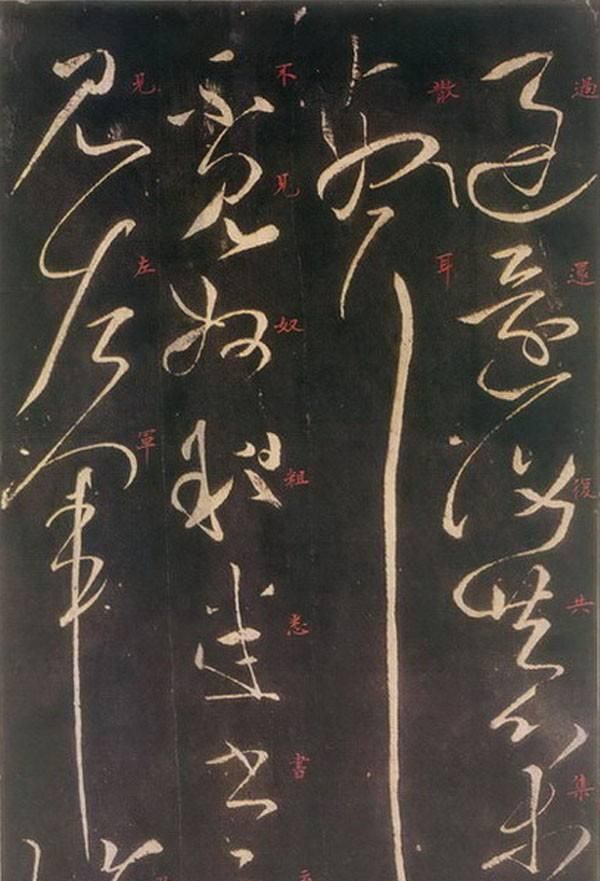 過還復共集
散耳
不見奴粗悉書
見左軍